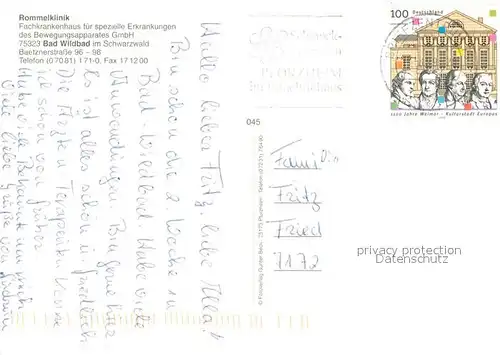 Rommelklinik
Fachkrankenhaus für spezielle Erkrankungen
des Bewegungsapparates GmbH
75323 Bad Wildbad im Schwarzwald
Baetznerstraße 96 – 98
Telefon (0 70 81) 1 71-0, Fax 17 12 00
Hallo, lieber Fritz, liebe Illa!
Bin schon die 2. Woche in
Bad Wildbad. Habe viele
Anwendungen. Bin gerne hier
Es ist alles schön u. gründlich
Die Ärzte u. Terapeuten kenne
ich schon von früher
Habe viele Bekannte um mich
Viele liebe Grüße von
045
Deutschland
100
1100 Jahre Weimar – Kulturstadt Europas
PFORZHEIM
Familie
Fritz
Fried
7172
privacy protection
Datenschutz